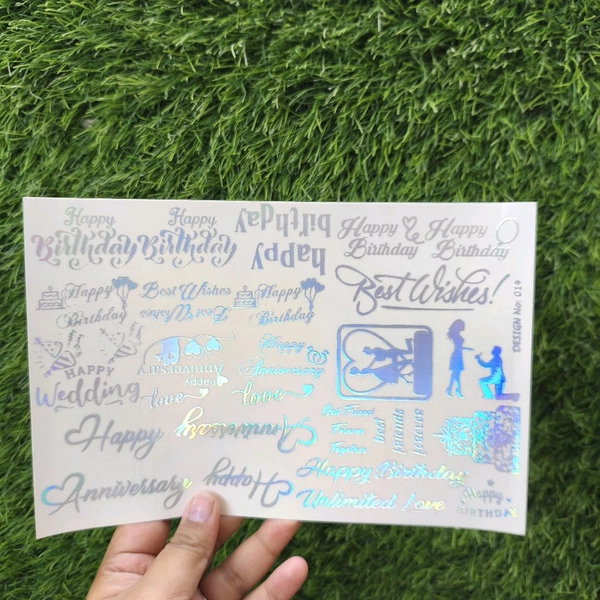 Happy
Birthday
Happy
Birthday
happy
birthday
Happy
Birthday
Happy
Birthday
Happy
Birthday
Best Wishes
Best Wishes
Happy
Birthday
Best Wishes!
DESIGN No. 01
HAPPY
Wedding
Happy
Anniversary
love
Happy
Anniversary
love
Happy
Anniversary
Best
friends
forever
Anniversary
Happy
Happy Birthday
Unlimited Love
Happy
BIRTHDAY